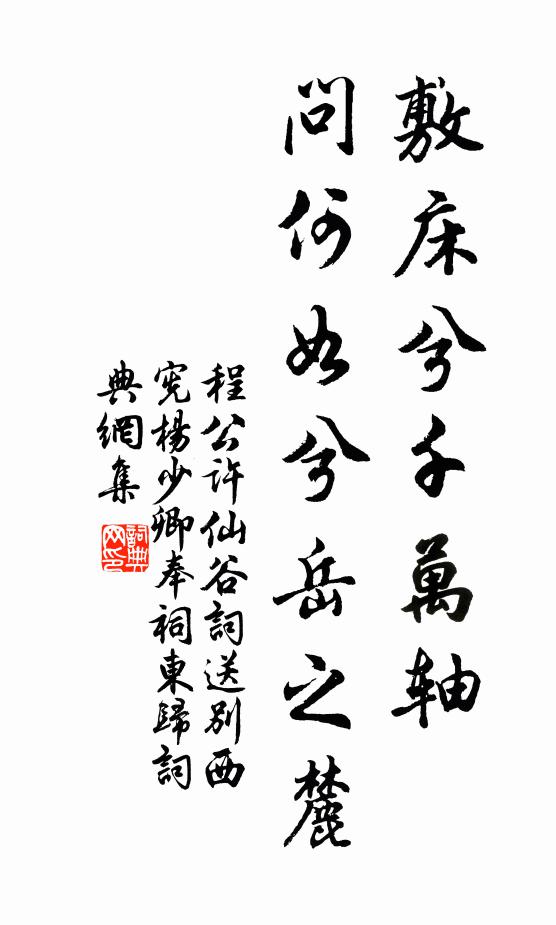 敷床兮千萬軸
問何如兮岳之麓
程公許仙谷詞送別西
憲楊少卿奉祠東歸詞
典網集
詞典網印